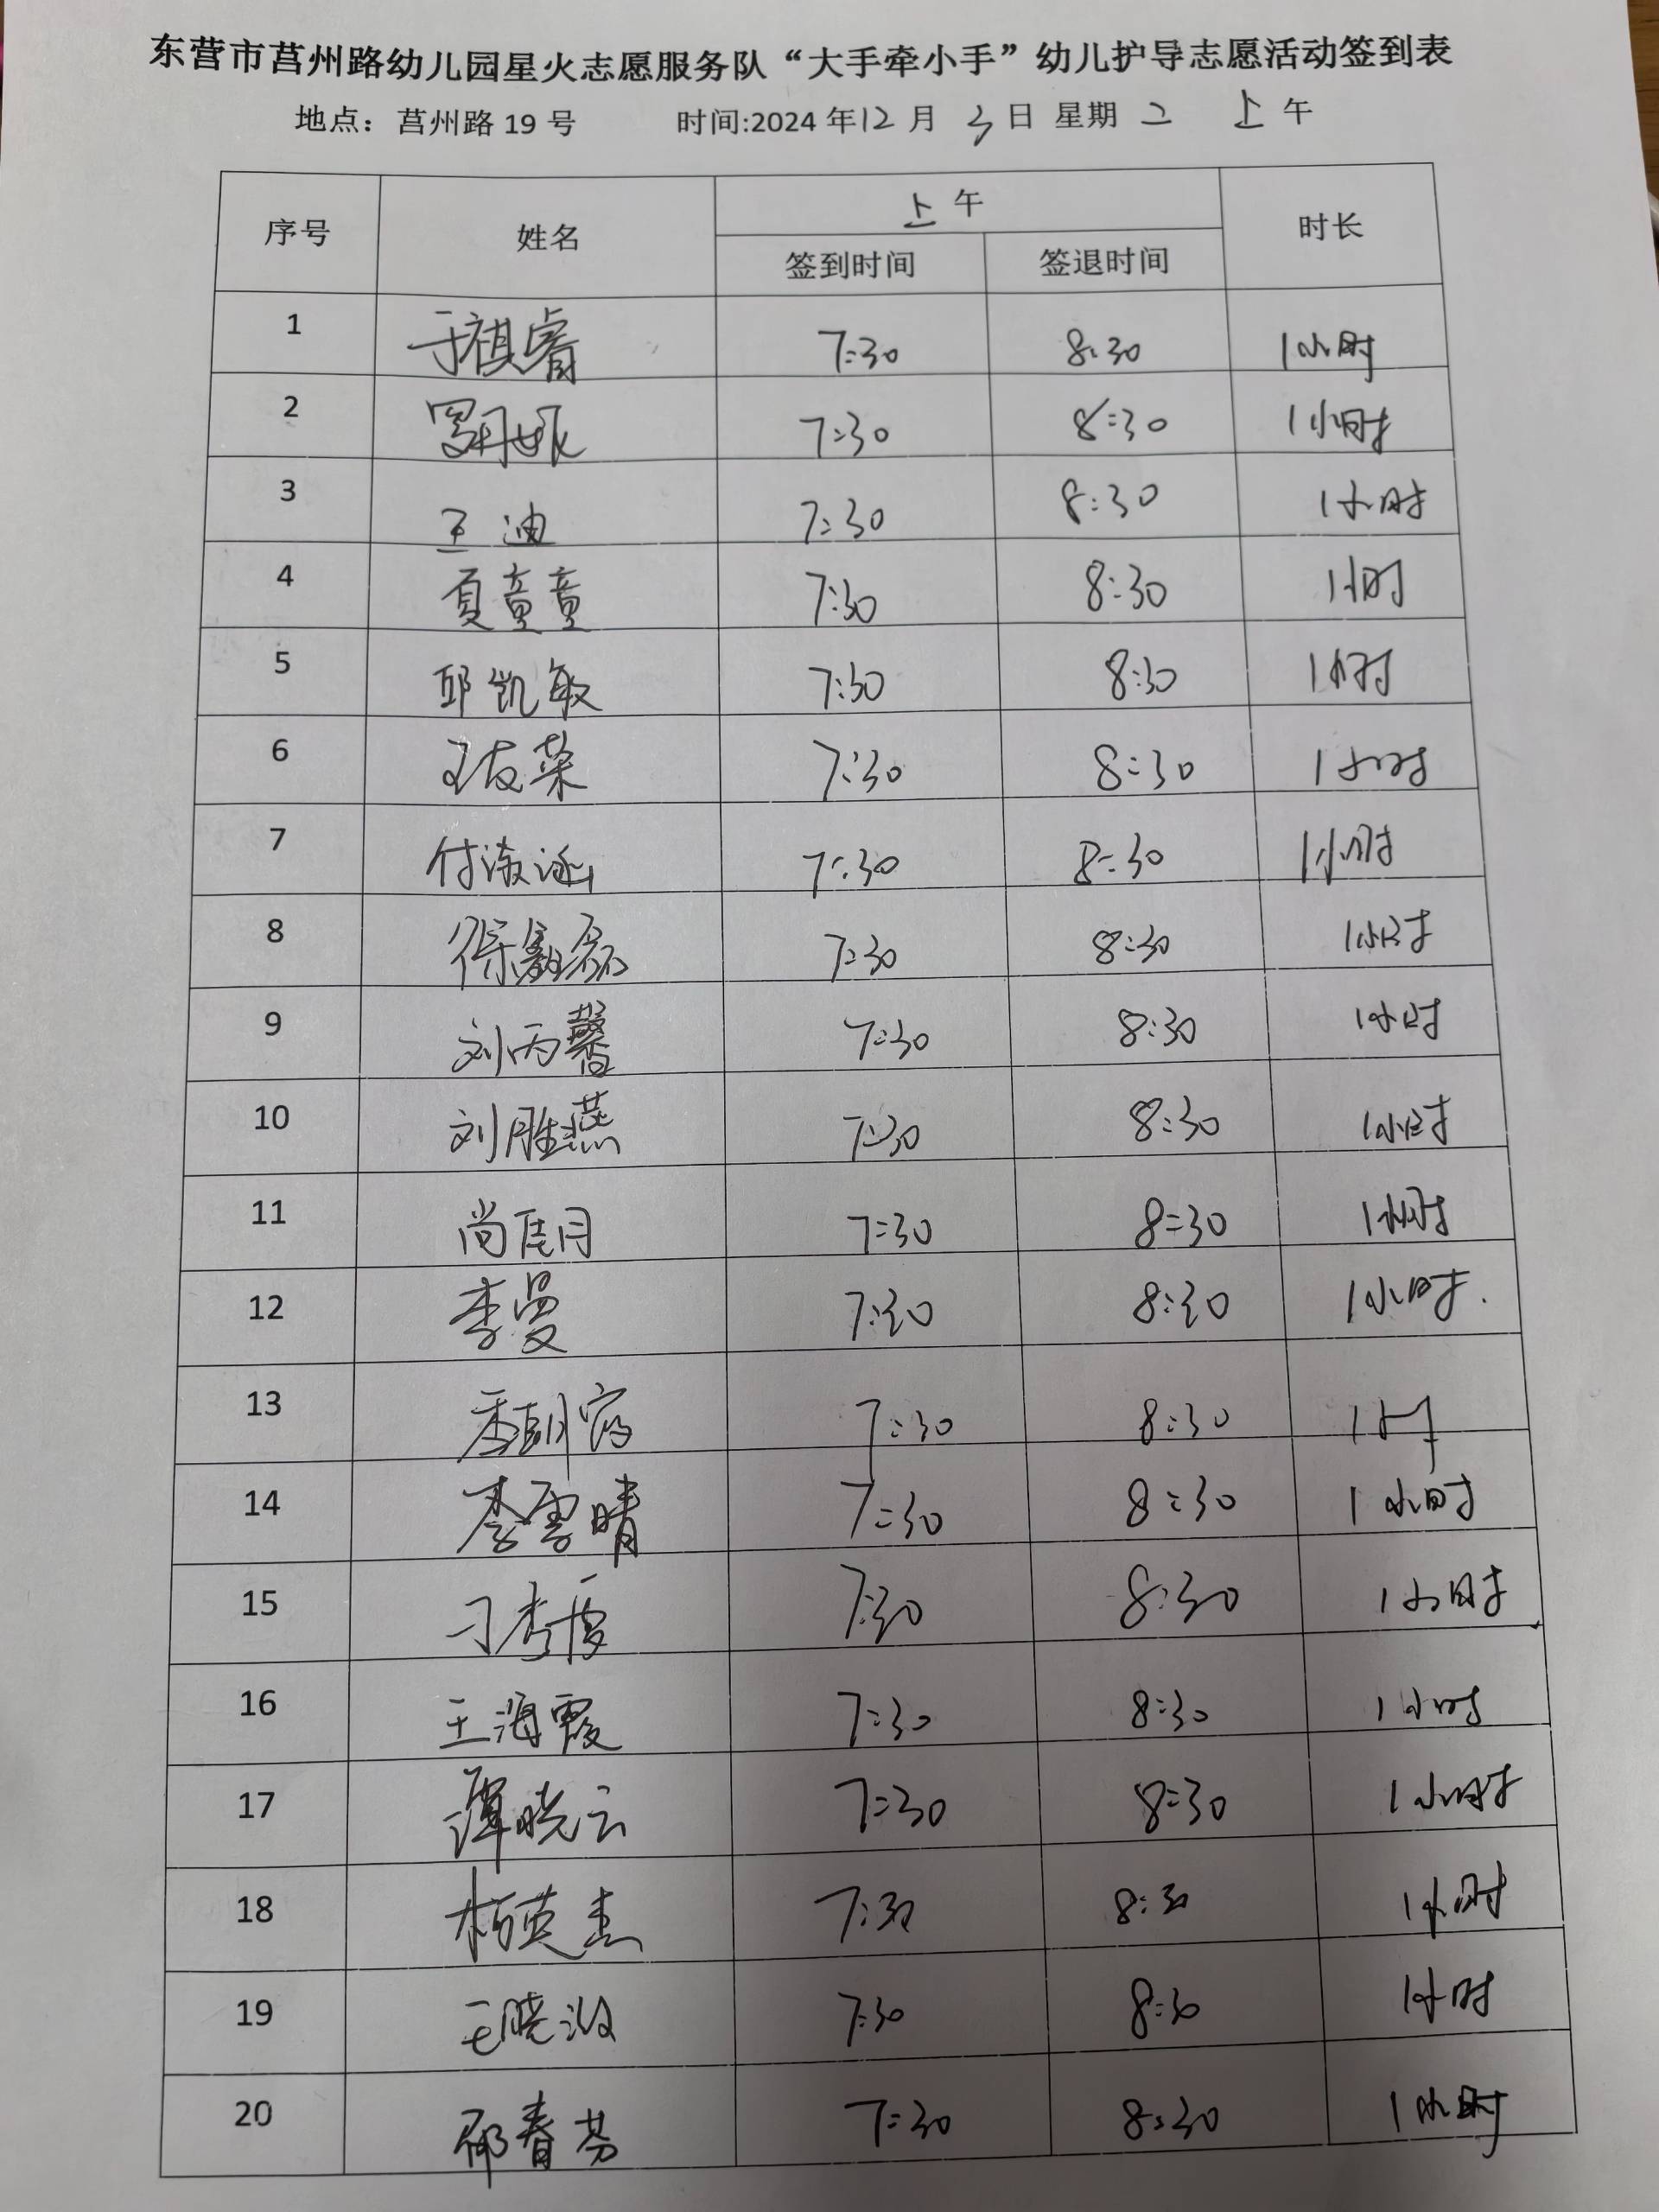 东营市莒州路幼儿园星火志愿服务队“大手牵小手”幼儿护导志愿活动签到表
地点：莒州路 19 号 时间:2024 年12 月 3 日 星期 二 上 午
序号 姓名 上 午 时长
签到时间 签退时间
1 于祺睿 7:30 8:30 1小时
2 7:30 8:30 1小时
3 王迪 7:30 8:30 1小时
4 夏童童 7:30 8:30 1小时
5 邱凯敏 7:30 8:30 1小时
6 王友荣 7:30 8:30 1小时
7 付淑涵 7:30 8:30 1小时
8 徐磊 7:30 8:30 1小时
9 刘丙馨 7:30 8:30 1小时
10 刘胜燕 7:30 8:30 1小时
11 尚佳月 7:30 8:30 1小时
12 李曼 7:30 8:30 1小时.
13 7:30 8:30 1小时
14 李雪晴 7:30 8:30 1小时
15 刁秀 7:30 8:30 1小时
16 王海霞 7:30 8:30 1小时
17 谭晓云 7:30 8:30 1小时
18 杨英杰 7:30 8:30 1小时
19 王晓波 7:30 8:30 1小时
20 邵春芬 7:30 8:30 1小时